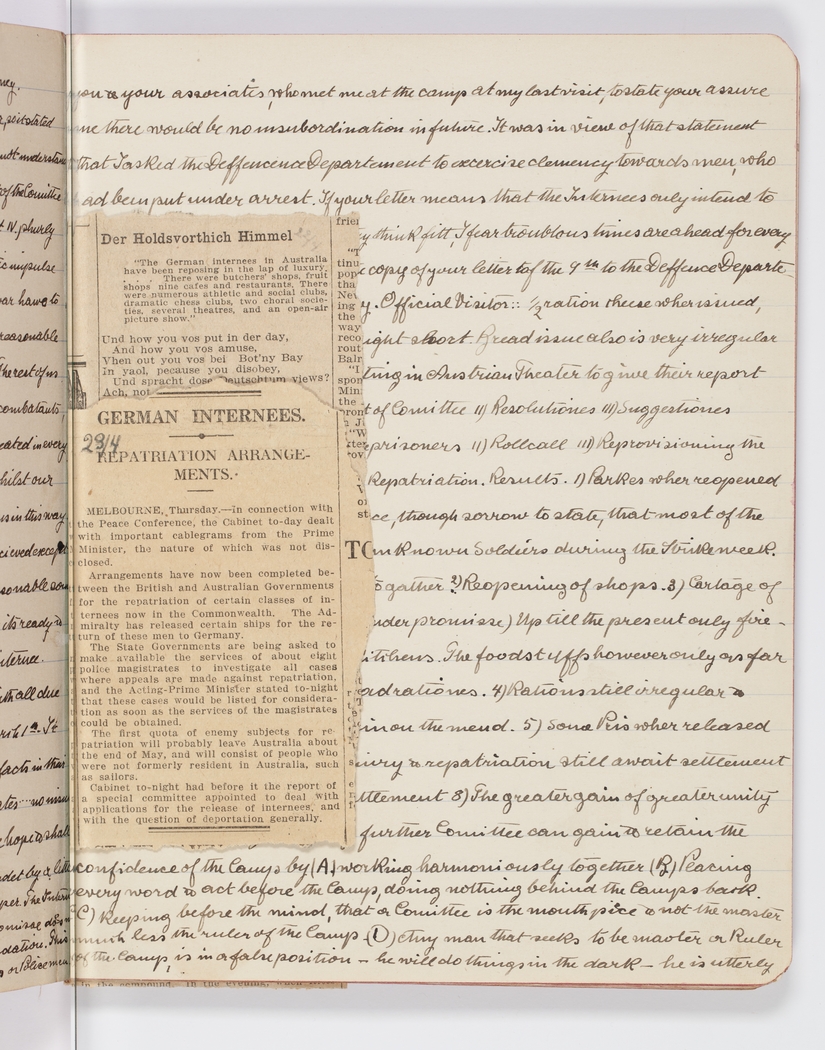 you & your associates, who met me at the camp at my last visit, to state your assure
me there would be no insubordination in future. It was in view of that statement
that I asked the Deffencence Departement to excercise clemency towards men, who
ad been put under arrest. If your letter means that the Internees only intend to
y think fitt, I fear troublous times are ahead for every
copy of your letter of the 9th to the Deffence Departe-
y. Official Visitor:: ½ ration these wher issued,
ight short. Bread issue also is very irregular
ting in Austrian Theater to give their report
t of Comittee II) Resolutiones III) Suggestiones
prisoners II) Rollcall III) Reprovisioning the
Repatriation. Results. 1) Parkes wher reopened
ce, though sorrow to state, that most of the
m known Soldiers during the Strike week.
ogather 2) Reopening of shops. 3) Cartage of
nder promisse) Up till the present only fire-
itchens. The foodstuffs however only as far
ad rationes. 4) Rations still irregular &
in on the mend. 5) Some Pris wher released
uiry & repatriation still await settlement
ttlement 8) The greater gain of greater unity
further Comittee can gain & retain the
confidence of the Camps by (A) working harmoniously together (B) Placing
every word & act before the Camps, doing nothing behind the Camps back.
(C) Keeping before the mind, that a Comittee is the mouth pice & not the master
much less the ruler of the Camp. (D) Any man that seeks to be master or Ruler
of the Camp, is in a false position — he will do things in the dark — he is utterly
Der Holdsvorthich Himmel
"The German internees in Australia
have been reposing in the lap of luxury.
. . . There were butchers' shops, fruit
shops nine cafes and restaurants. There
were numerous athletic and social clubs,
dramatic chess clubs, two choral socie-
ties, several theatres, and an open-air
picture show."
Und how you vos put in der day,
And how you vos amuse,
Vhen out you vos bei Bot'ny Bay
In yaol, pecause you disobey,
Und spracht dose Deutschtum views?
Ach, not
GERMAN INTERNEES.
23/4
REPATRIATION ARRANGE-
MENTS.
MELBOURNE, Thursday.—In connection with
the Peace Conference, the Cabinet to-day dealt
with important cablegrams from the Prime
Minister, the nature of which was not dis-
closed.
Arrangements have now been completed be-
tween the British and Australian Governments
for the repatriation of certain classes of in-
ternees now in the Commonwealth. The Ad-
miralty has released certain ships for the re-
turn of these men to Germany.
The State Governments are being asked to
make available the services of about eight
police magistrates to investigate all cases
where appeals are made against repatriation,
and the Acting-Prime Minister stated to-night
that these cases would be listed for considera-
tion as soon as the services of the magistrates
could be obtained.
The first quota of enemy subjects for re-
patriation will probably leave Australia about
the end of May, and will consist of people who
were not formerly resident in Australia, such
as sailors.
Cabinet to-night had before it the report of
a special committee appointed to deal with
applications for the release of internees, and
with the question of deportation generally.
in the compound. In the evening, when